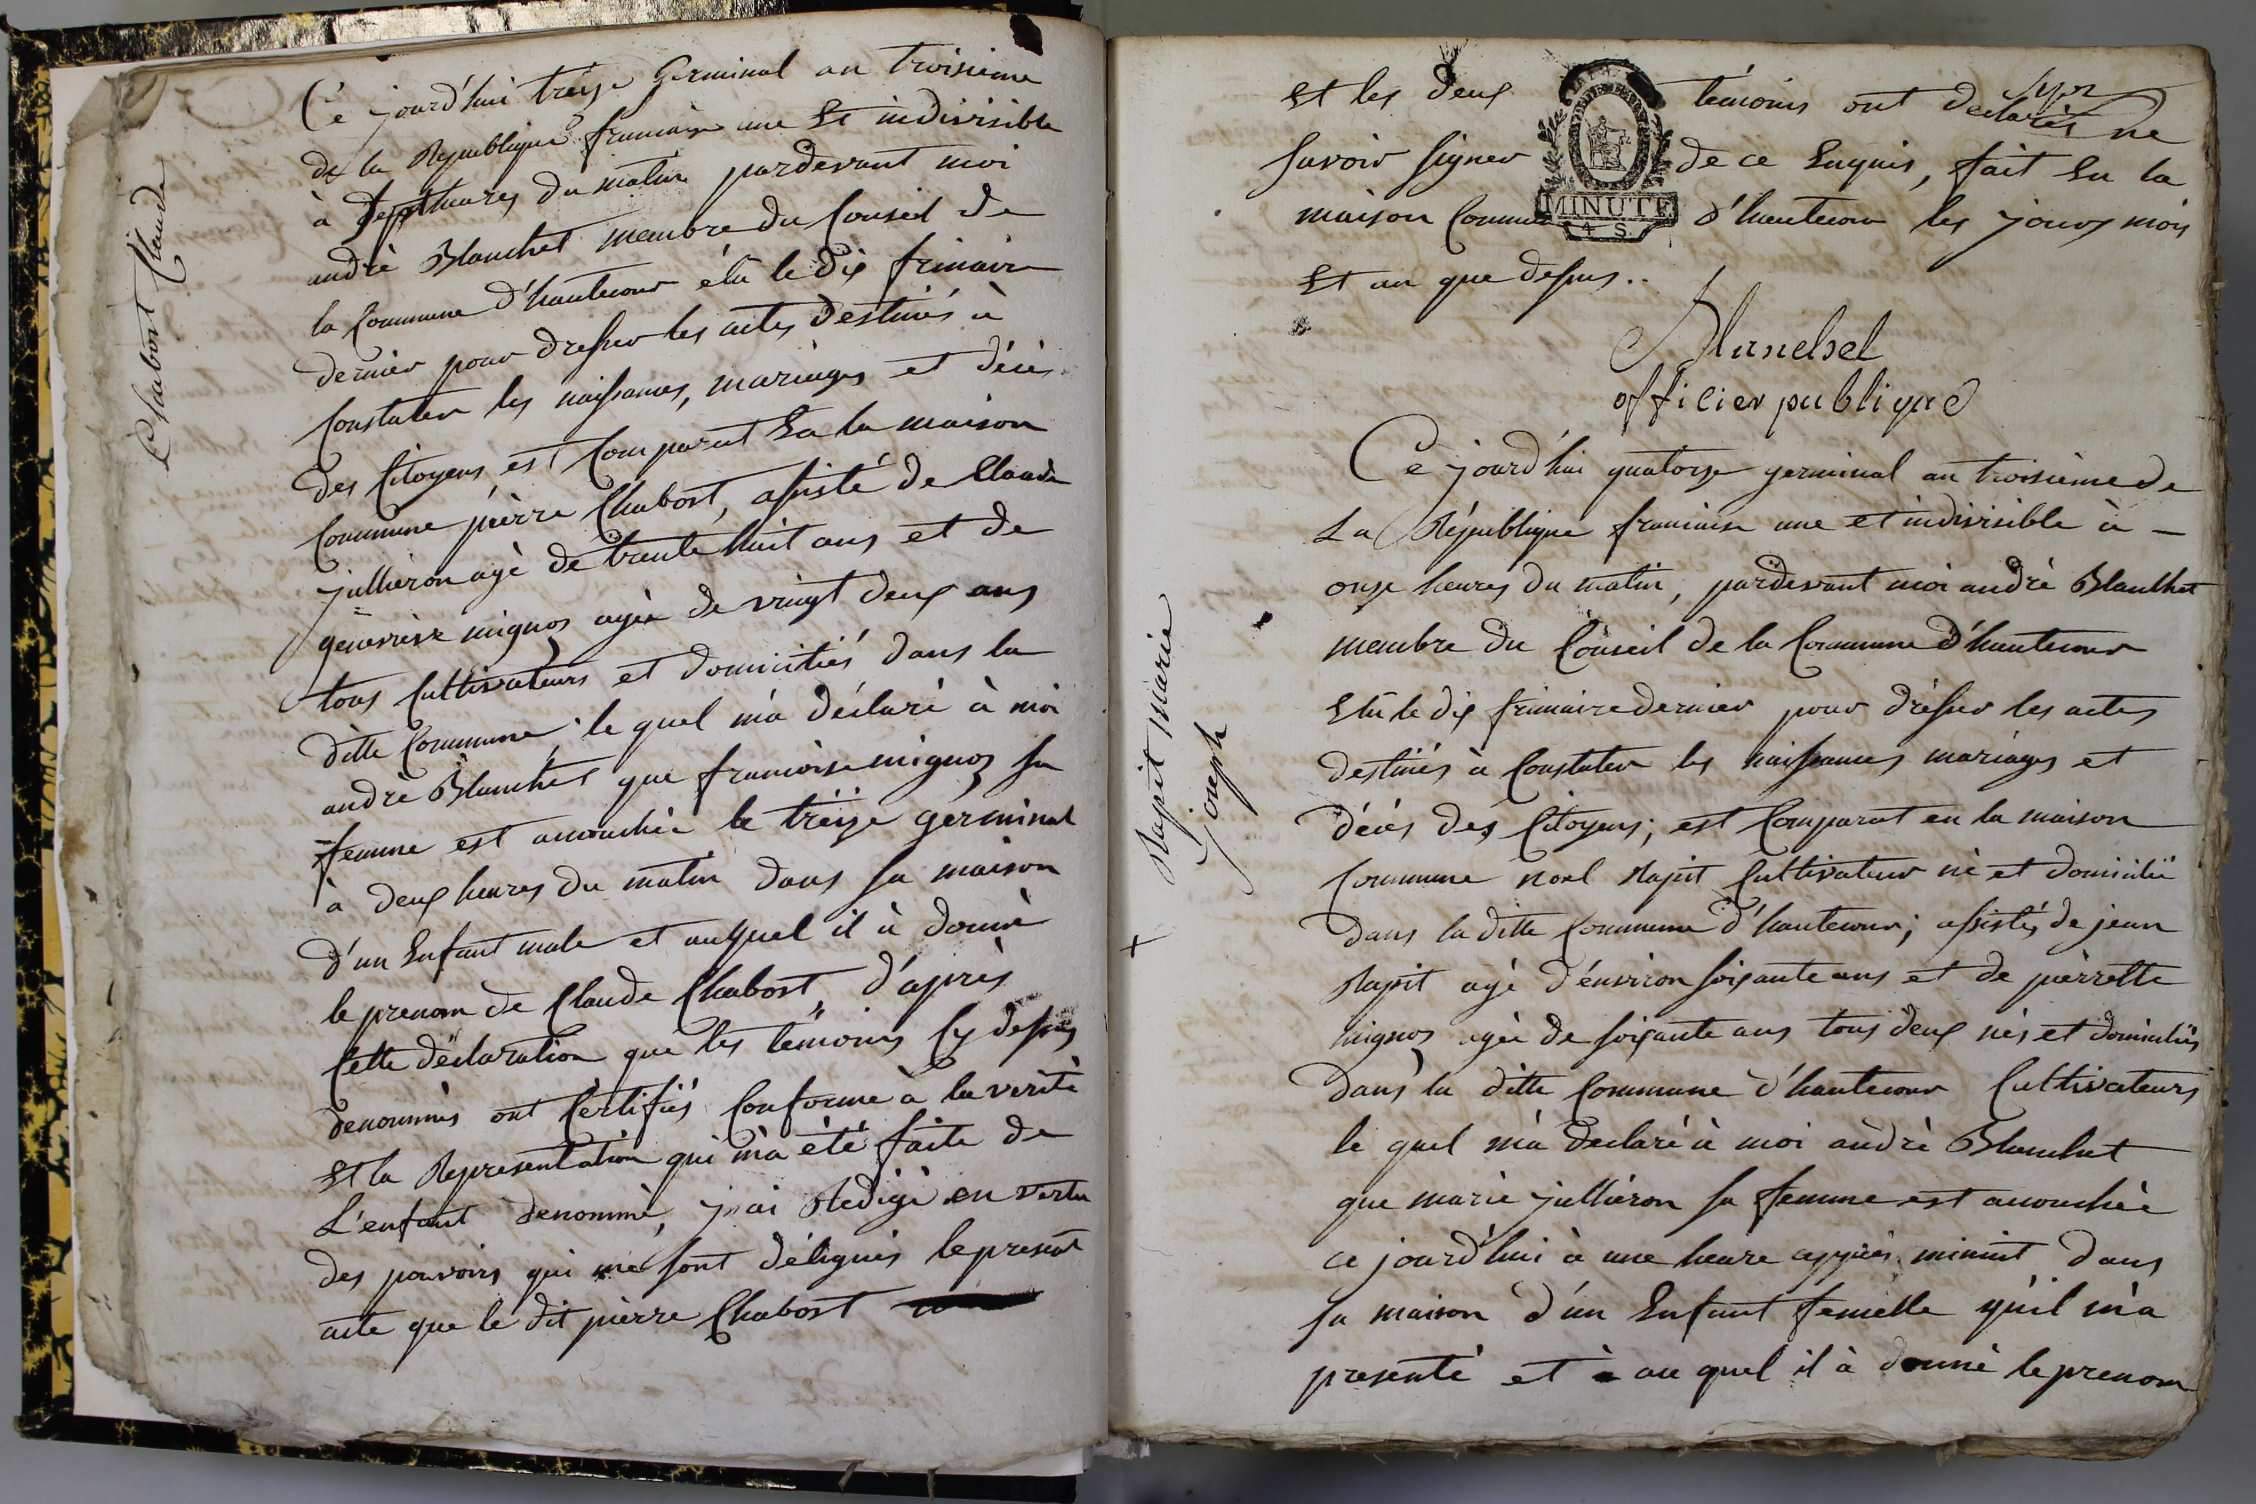 Chabort Claude
Ce jourd'hui treize Germinal an troisieme
de la Republique francaise une Et indivisible
à Septheures du matin pardevant moi
andrè Blanchet membre du Conseil de
la Commune d'hautecour élû le dix frimaire
dernier pour dresser les actes destinés à
Constater les naissances, mariages et décès
des Citoyens est Comparut En la maison
Commune pièrre Chabort, assisté de Claude
jullieron agè de trente huit ans et de
genevieve mignoz agée de vingt deux ans
tous Cultivateurs et domiciliés dans la
ditte Commune le quel m'a déclaré à moi
andrè Blanchet que francoise mignoz sa
femme est accouchée le treize germinal
à deux heures du matin dans sa maison
d'un Enfant male et auquel il à donnè
le prenom de Claude Chabort, d'après
Cette déclaration que les témoins Cy dessus
denommès ont Certifiés Conforme à la verité
Et la Representation qui m'à été faite de
L'enfant denommè, j'ai Redigè en vertu
des pouvoirs qui me sont délégués le present
acte que le dit pièrre Chabort
Et les deux témoins ont declarès ne
savoir signer de ce Enquis, fait En la
maison Commune d'hautecour les jours mois
Et an que dessus..
MINUTE
4 S.
Blanchet
officier publique
Rapit marie
joseph
Ce jourd'hui quatorze germinal an troisième de
La République francaise une et indivisible à –
onze heures du matin, pardevant moi andrè Blanchet
membre du Conseil de la Commune d'hautecour
Elû le dix frimaire dernier pour drésser les actes
destinés à Constater les naissances mariages et
décès des Citoyens; est Comparut en la maison
Commune noel Rapit Cultivateur nè et domicilié
dans la ditte Commune d'hautecour; assistés de jean
Rapit agè d'environ soixante ans et de pièrrette
mignoz agée de soixante ans tous deux nès et domiciliés
dans la ditte Commune d'hautecour Cultivateurs
le quel m'à declaré à moi andrè Blanchet
que marie jullièron sa femme est accouchée
ce jourd'hui à une heure apprès minuit dans
sa maison d'un Enfant femelle qu'il m'a
presenté et au quel il à donnè le prenom